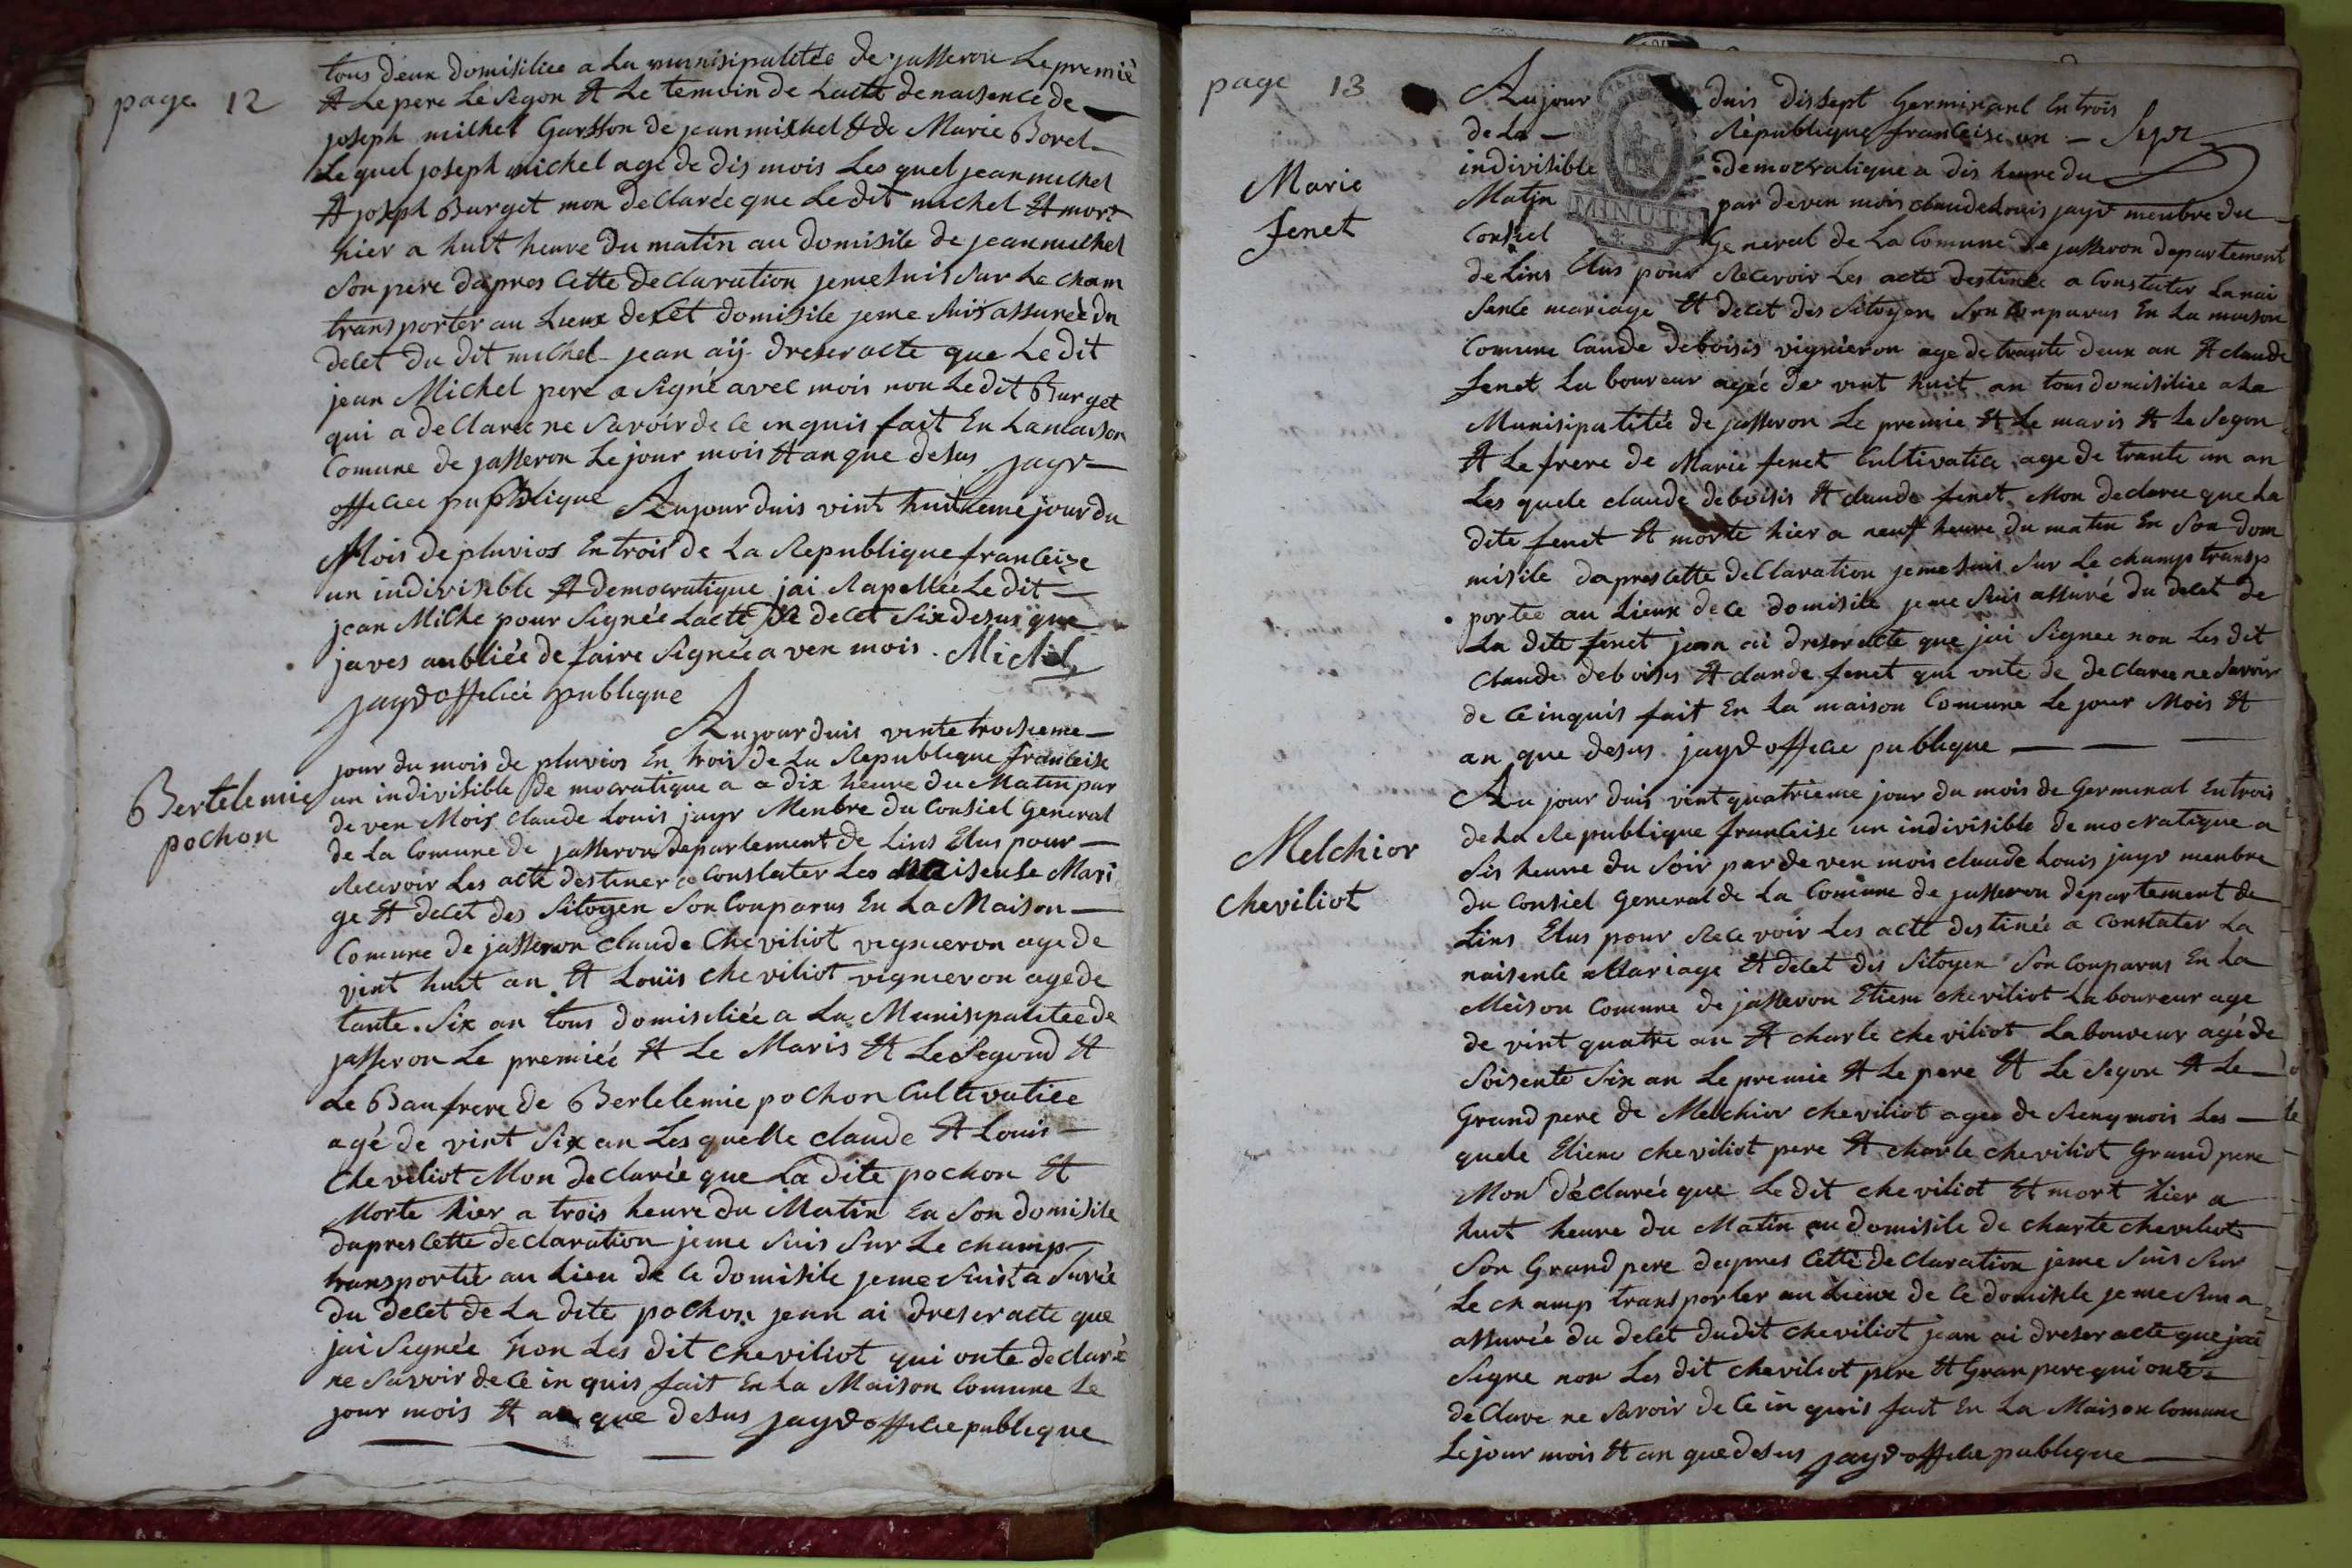 page 12
tous deux domisiliee a La munisipalitée de jasseron Le premié
Et Le pere Le segon Et Le temoin de Lactt de naisence de
joseph milhel Garsson de jean milhel Et de Marie Borel
Le quel joseph michel age de dis mois Les quel jean milhel
Et joseph Burget mon declarée que Le dit michel Et mort
hier a huit heure du matin au domisile de jean milhel
Son pere dapres Cette declaration jeme suis sur Le cham
transporter au Lieux de Cet domisile jeme suis assurée du
decet du dit milhel jean aÿ dreser acte que Le dit
jean Michel pere a signé avec mois non Le dit Burget
qui a declaree ne savoir de Ce inquis fait En La maison
Comune de jasseron Le jour mois Et an que desus jayr
officiee pupblique Aujourduis vint huitieme jour du
Mois de pluvios En trois de La Republique franceise
un indivisible Et democratique jai Rapellée Le dit
jean Milhe pour signée Lactt de decet six desus que
javes aubliée de faire signée a ven mois Michel
jayr officié publique
Aujourduis vente troisieme
Bertelemie
pochon
jour du mois de pluvios En trois de La Republique franceise
un indivisible democratique a a dix heure du Matin par
de ven Mois Claude Louis jayr Menbre du Consiel General
de La Comune de jasseron departement de Lins Elus pour
Recevoir Les actt destiner a Constater Les naisense Mari
ge Et decet des Sitoyen Son Conparus En La Maison
Comune de jasseron claude Cheviliot vignieron age de
vint huit an Et Louïs cheviliot vignieron age de
tante Six an tous domisiliée a La Munisipalitée de
jasseron Le premiée Et Le Maris Et Le Segond Et
Le Baufrere de Bertelemie pochon Cultivatiee
agé de vint Six an Les quelle claude Et Louis
Cheviliot Mon declarée que La dite pochon Et
Morte hier a trois heure du Matin En Son domisile
dapres Cette declaration jeme suis sur Le champ
transportée au Lieu de Ce domisile jeme suis a surée
du decet de La dite pochon jean ai dreser acte que
jai Signée non Les dit cheviliot qui onte declaré
ne savoir de Ce in quis fait En La Maison Comune Le
jour mois Et an que desus jayr officie publique
page 13
Aujour duis dissept Germinanl En trois
de La Republique franceise un
indivisible democratique a dis heure du
Matin par deven mois claude Louis jayr menbre du
Consiel General de La Comune de jasseron departement
Marie
fenet
MINUTE
de Lins Elus pour Recevoir Les actt destinée a Constater La nai
sense mariage Et decet des Sitoyen Son Conparus En La maison
Comune Caude deboisis vignieron age de trante deux an Et claude
fenet Laboureur agée de vint huit an tous domisiliee a La
Munisipalitée de jasseron Le premie Et Le maris Et Le Segon
Et Le frere de Marie fenet Cultivatice age de trante un an
Les quele claude deboisis Et claude fenet Mon declaree que La
dite fenet Et morte hier a neuf heure du matin En Son dom
misile dapres Cette declaration jeme suis sur Le champ transp
portée au Lieux de Ce domisile jeme suis assuré du decet de
La dite fenet jean ai dreser acte que jai Signee non Les dit
Claude deboisis Et claude fenet qui onte de declaree ne savoir
de Ce inquis fait En La maison Comune Le jour Mois Et
an que desus jayr officie publique
Melchior
cheviliot
Au jour duis vint quatrieme jour du mois de Germinal En trois
de La Republique franceise un indivisible democratique a
Sis heure du Soir par de ven mois claude Louis jayr menbre
du Consiel General de La Comune de jasseron departement de
Lins Elus pour Recevoir Les actt destinée a Constater La
naisense Mariage Et decet des Sitoyen Son Conparus En La
Maison Comune de jasseron Etiene cheviliot Laboureur age
de vint quatre an Et charle cheviliot Laboureur agé de
Soisente Six an Le premie Et Le pere Et Le Segon Et Le
Grand pere de Melchior cheviliot agee de Sienq mois Les
quele Etiene cheviliot pere Et charle cheviliot Grand pere
Mon déclarée que Le dit cheviliot Et mort hier a
huit heure du Matin au domisile de charle cheviliot
Son Grand pere dapres Cette declaration jeme suis sur
Le champ transporter au Lieux de Ce domisile jeme suis a
assurée du decet dudit cheviliot jean ai dreser acte que jai
Signe non Les dit cheviliot pere Et Gran pere qui onte
declare ne savoir de Ce in quis fait En La Maison Comune
Le jour mois Et an que desus jayr officie publique